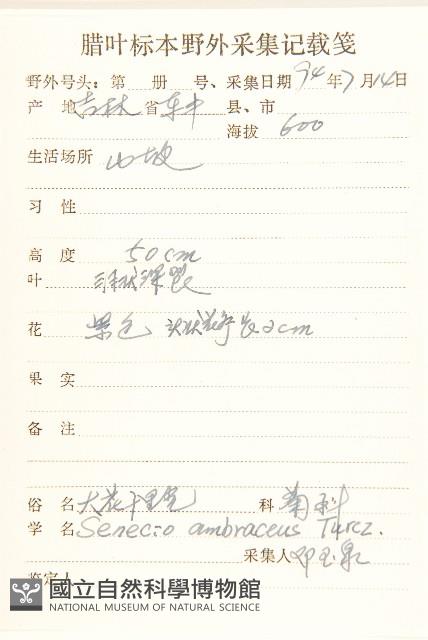 腊叶标本野外采集记载笺
野外号头：第 册 号、采集日期 94 年 7 月 14 日
产 地 吉林 省 县、市
海拔 600
生活场所 山坡
习 性
高 度 50cm
叶
花 色 2cm
果 实
备 注
俗 名 大花千里光 科 菊科
学 名 Senecio ambraceus Turcz.
采集人 邓玉泉
鉴定人
國立自然科學博物館
NATIONAL MUSEUM OF NATURAL SCIENCE